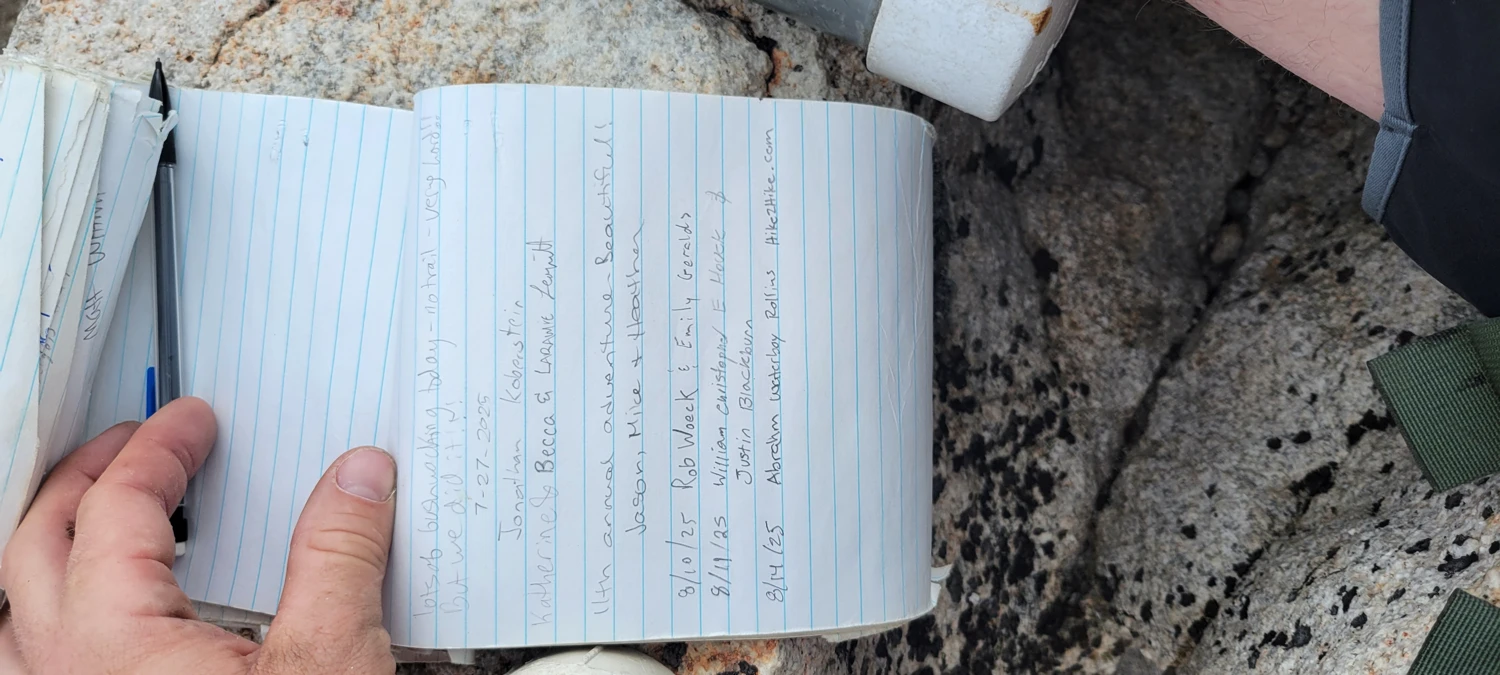 lots of bushwacking today - no trail - very hard!!
But we did it!!
7-27-2025
Jonathan Koberstein
Katherine & Becca & Laramie
11th annual adventure - Beautiful!
Jason, Mice + Heather
8/10/25 Rob Woeck & Emily Geralds
8/11/25 William Christopher E Houck
Justin Blackburn
8/14/25 Abrahm Waterboy Rollins Hike2Hike.com
Matt